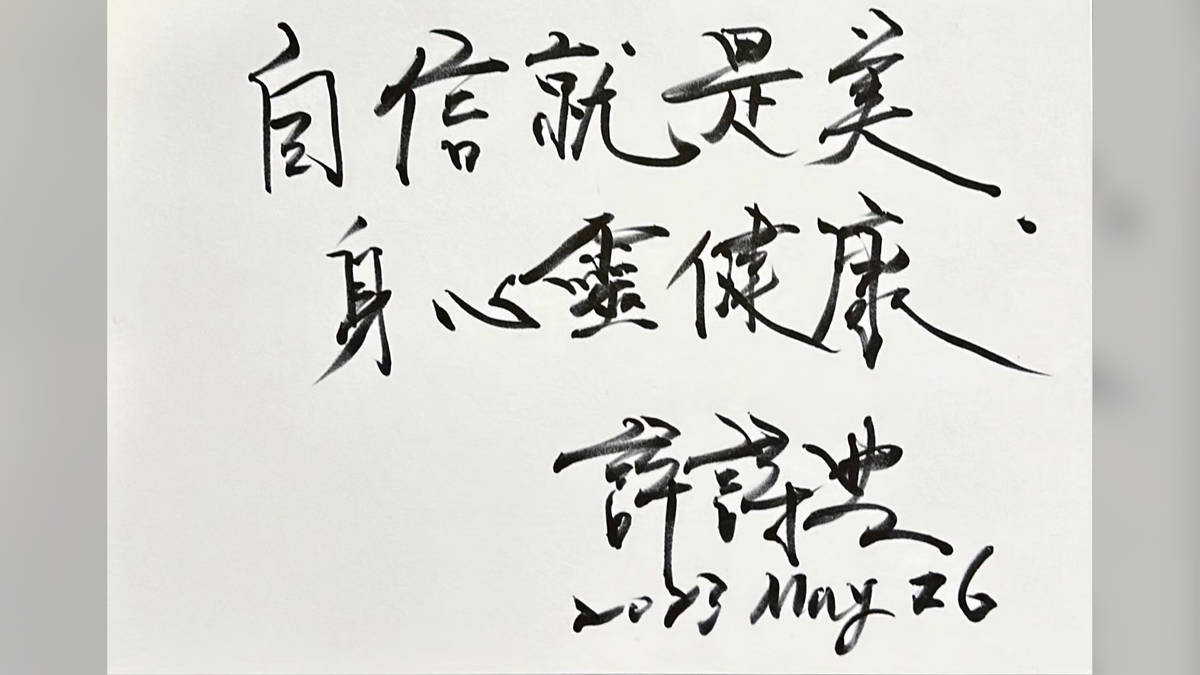 自信就是美.
身心靈健康
許詩典
2023 May 26